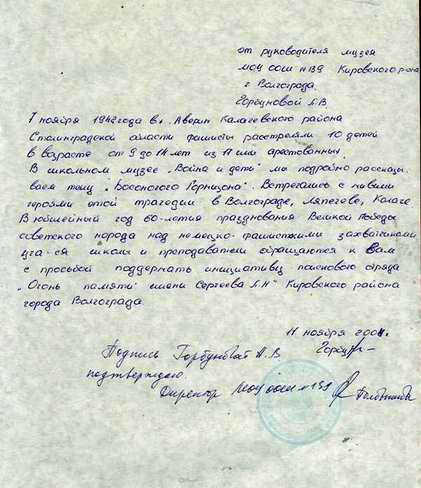 от руководителя музея
МОУ ООШ №139 Кировского р-на
г Волгограда.
Горецновой А.В
7 ноября 1942 года в х. Аверин Калачевского района
Сталинградской области фашисты расстреляли 10 детей
в возрасте от 9 до 14 лет из 17 или арестованных.
В школьном музее „Война и дети" мы подробно рассказы-
ваем о „Босоногого Гарнизона". Встречались с живыми
героями этой трагедии в Волгограде, Ляпичеве, Калаче.
В юбилейный год 60-летия празднования Великой Победы
советского народа над немецко-фашистскими захватчиками
уча-ся школы и преподаватели обращаются к Вам
с просьбой поддержать инициативу поискового отряда
„Огонь памяти" имени Сергеева А.Н" Кировского района
города Волгограда.
11 ноября
Подпись А.В
подтверждаю
Директор МОУ ООШ №139